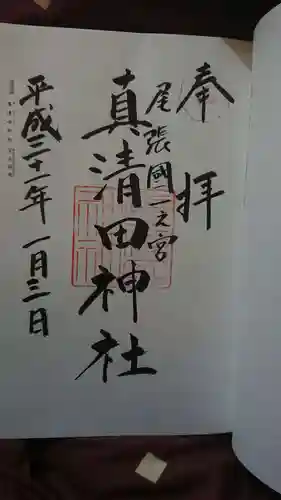 奉拝
尾張國一之宮
真清田神社
平成三十一年一月三日